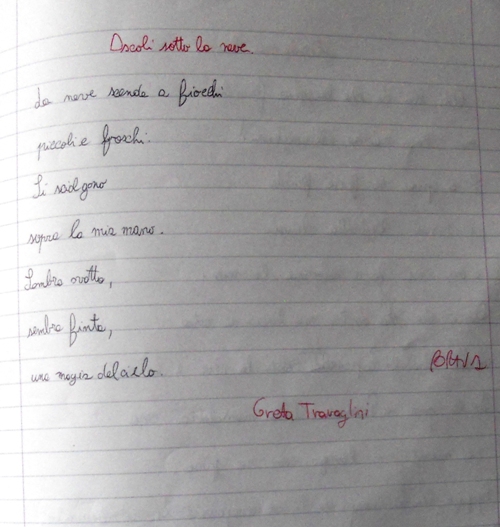 Ascoli sotto la neve.
La neve scende a fiocchi
piccoli e freschi.
Si sciolgono
sopra la mia mano.
Sembra ovatta,
sembra finta,
una magia del cielo.
BRAVA
Greta Travaglini